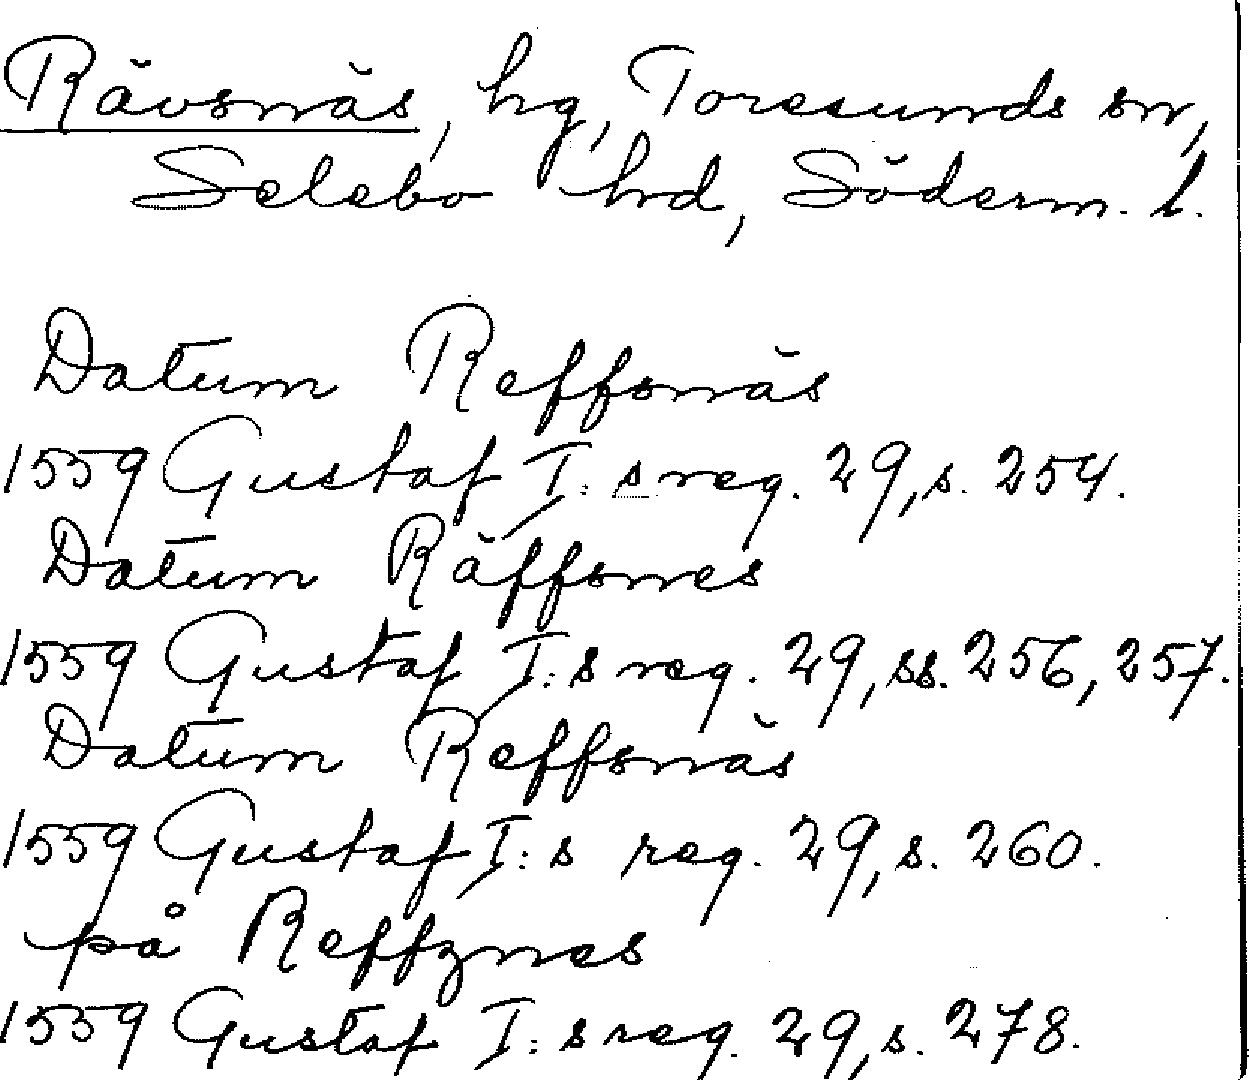 Rävsnäs, hg, Toresunds sn,
Selebo hd, Söderm. l.
Datum Reffsnäs
1559 Gustaf I:s reg. 29, s. 254.
Datum Räffsnes
1559 Gustaf I:s reg. 29, ss. 256, 257.
Datum Reffsnäs
1559 Gustaf I:s reg. 29, s. 260.
på Reffznes
1559 Gustaf I:s reg. 29, s. 278.